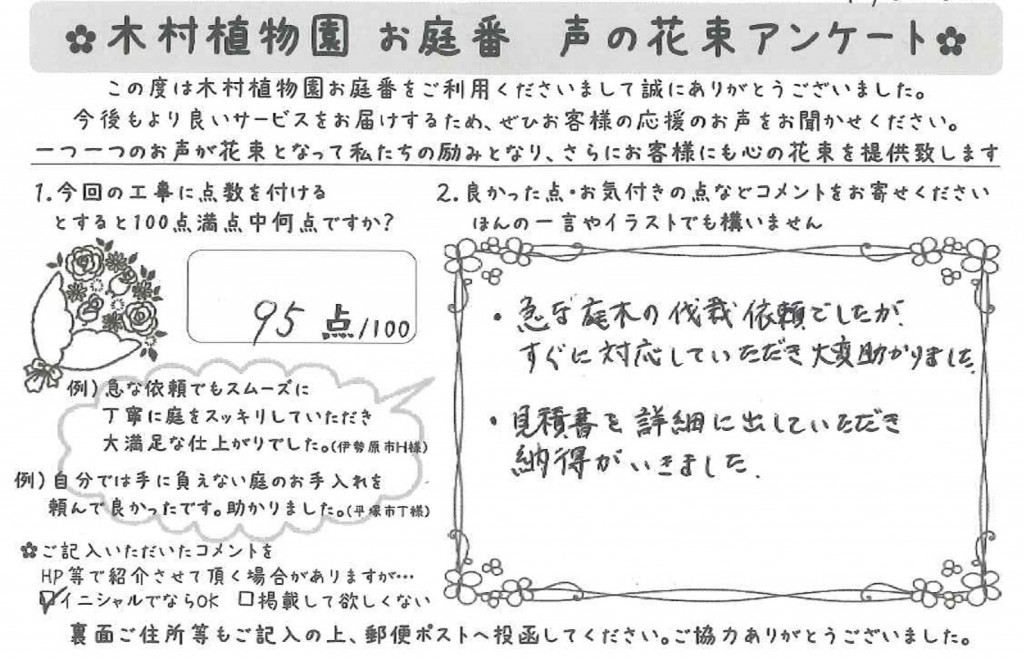 ✿木村植物園 お庭番 声の花束アンケート✿
この度は木村植物園お庭番をご利用くださいまして誠にありがとうございました。
今後もより良いサービスをお届けするため、ぜひお客様の応援のお声をお聞かせください。
一つ一つのお声が花束となって私たちの励みとなり、さらにお客様にも心の花束を提供致します
1.今回の工事に点数を付ける
とすると100点満点中何点ですか?
95 点/100
例)急な依頼でもスムーズに
丁寧に庭をスッキリしていただき
大満足な仕上がりでした。(伊勢原市H様)
例)自分では手に負えない庭のお手入れを
頼んで良かったです。助かりました。(平塚市T様)
✿ご記入いただいたコメントを
HP等で紹介させて頂く場合がありますが…
☑イニシャルでならOK □掲載して欲しくない
2.良かった点・お気付きの点などコメントをお寄せください
ほんの一言やイラストでも構いません
・急な庭木の伐栽依頼でしたが、
すぐに対応していただき大変助かりました。
・見積書を詳細に出していただき
納得がいきました。
裏面ご住所等もご記入の上、郵便ポストへ投函してください。ご協力ありがとうございました。